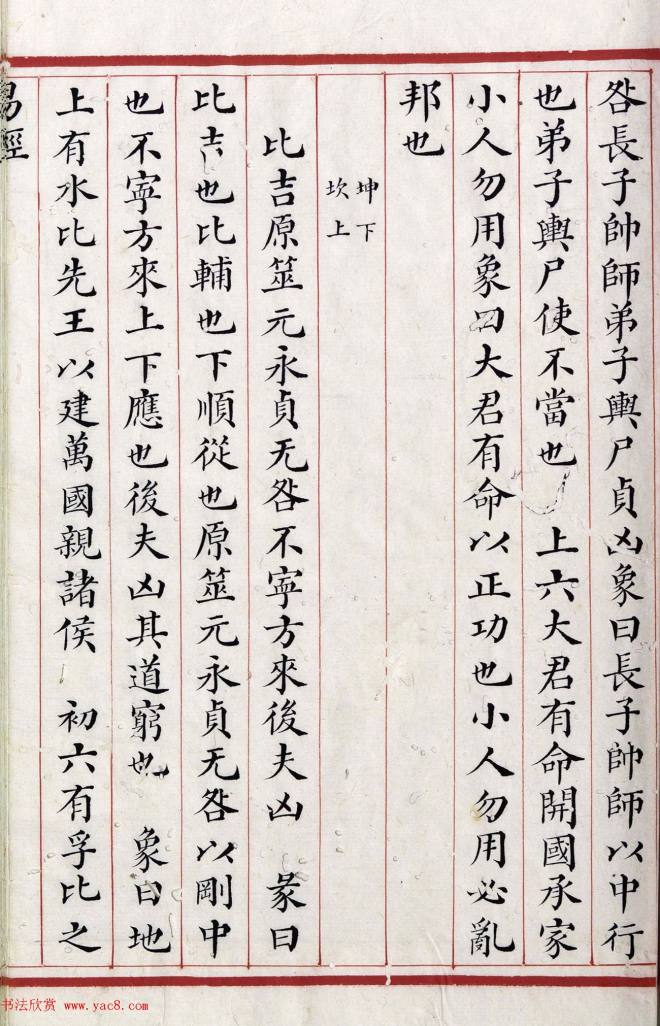 咎長子帥師弟子輿尸貞凶象曰長子帥師以中行
也弟子輿尸使不當也 上六大君有命開國承家
小人勿用象曰大君有命以正功也小人勿用必亂
邦也
坤下
坎上
比吉原筮元永貞无咎不寧方來後夫凶 彖曰
比吉也比輔也下順從也原筮元永貞无咎以剛中
也不寧方來上下應也後夫凶其道窮也 象曰地
上有水比先王以建萬國親諸侯 初六有孚比之
易經
书法欣赏 www.yac8.com